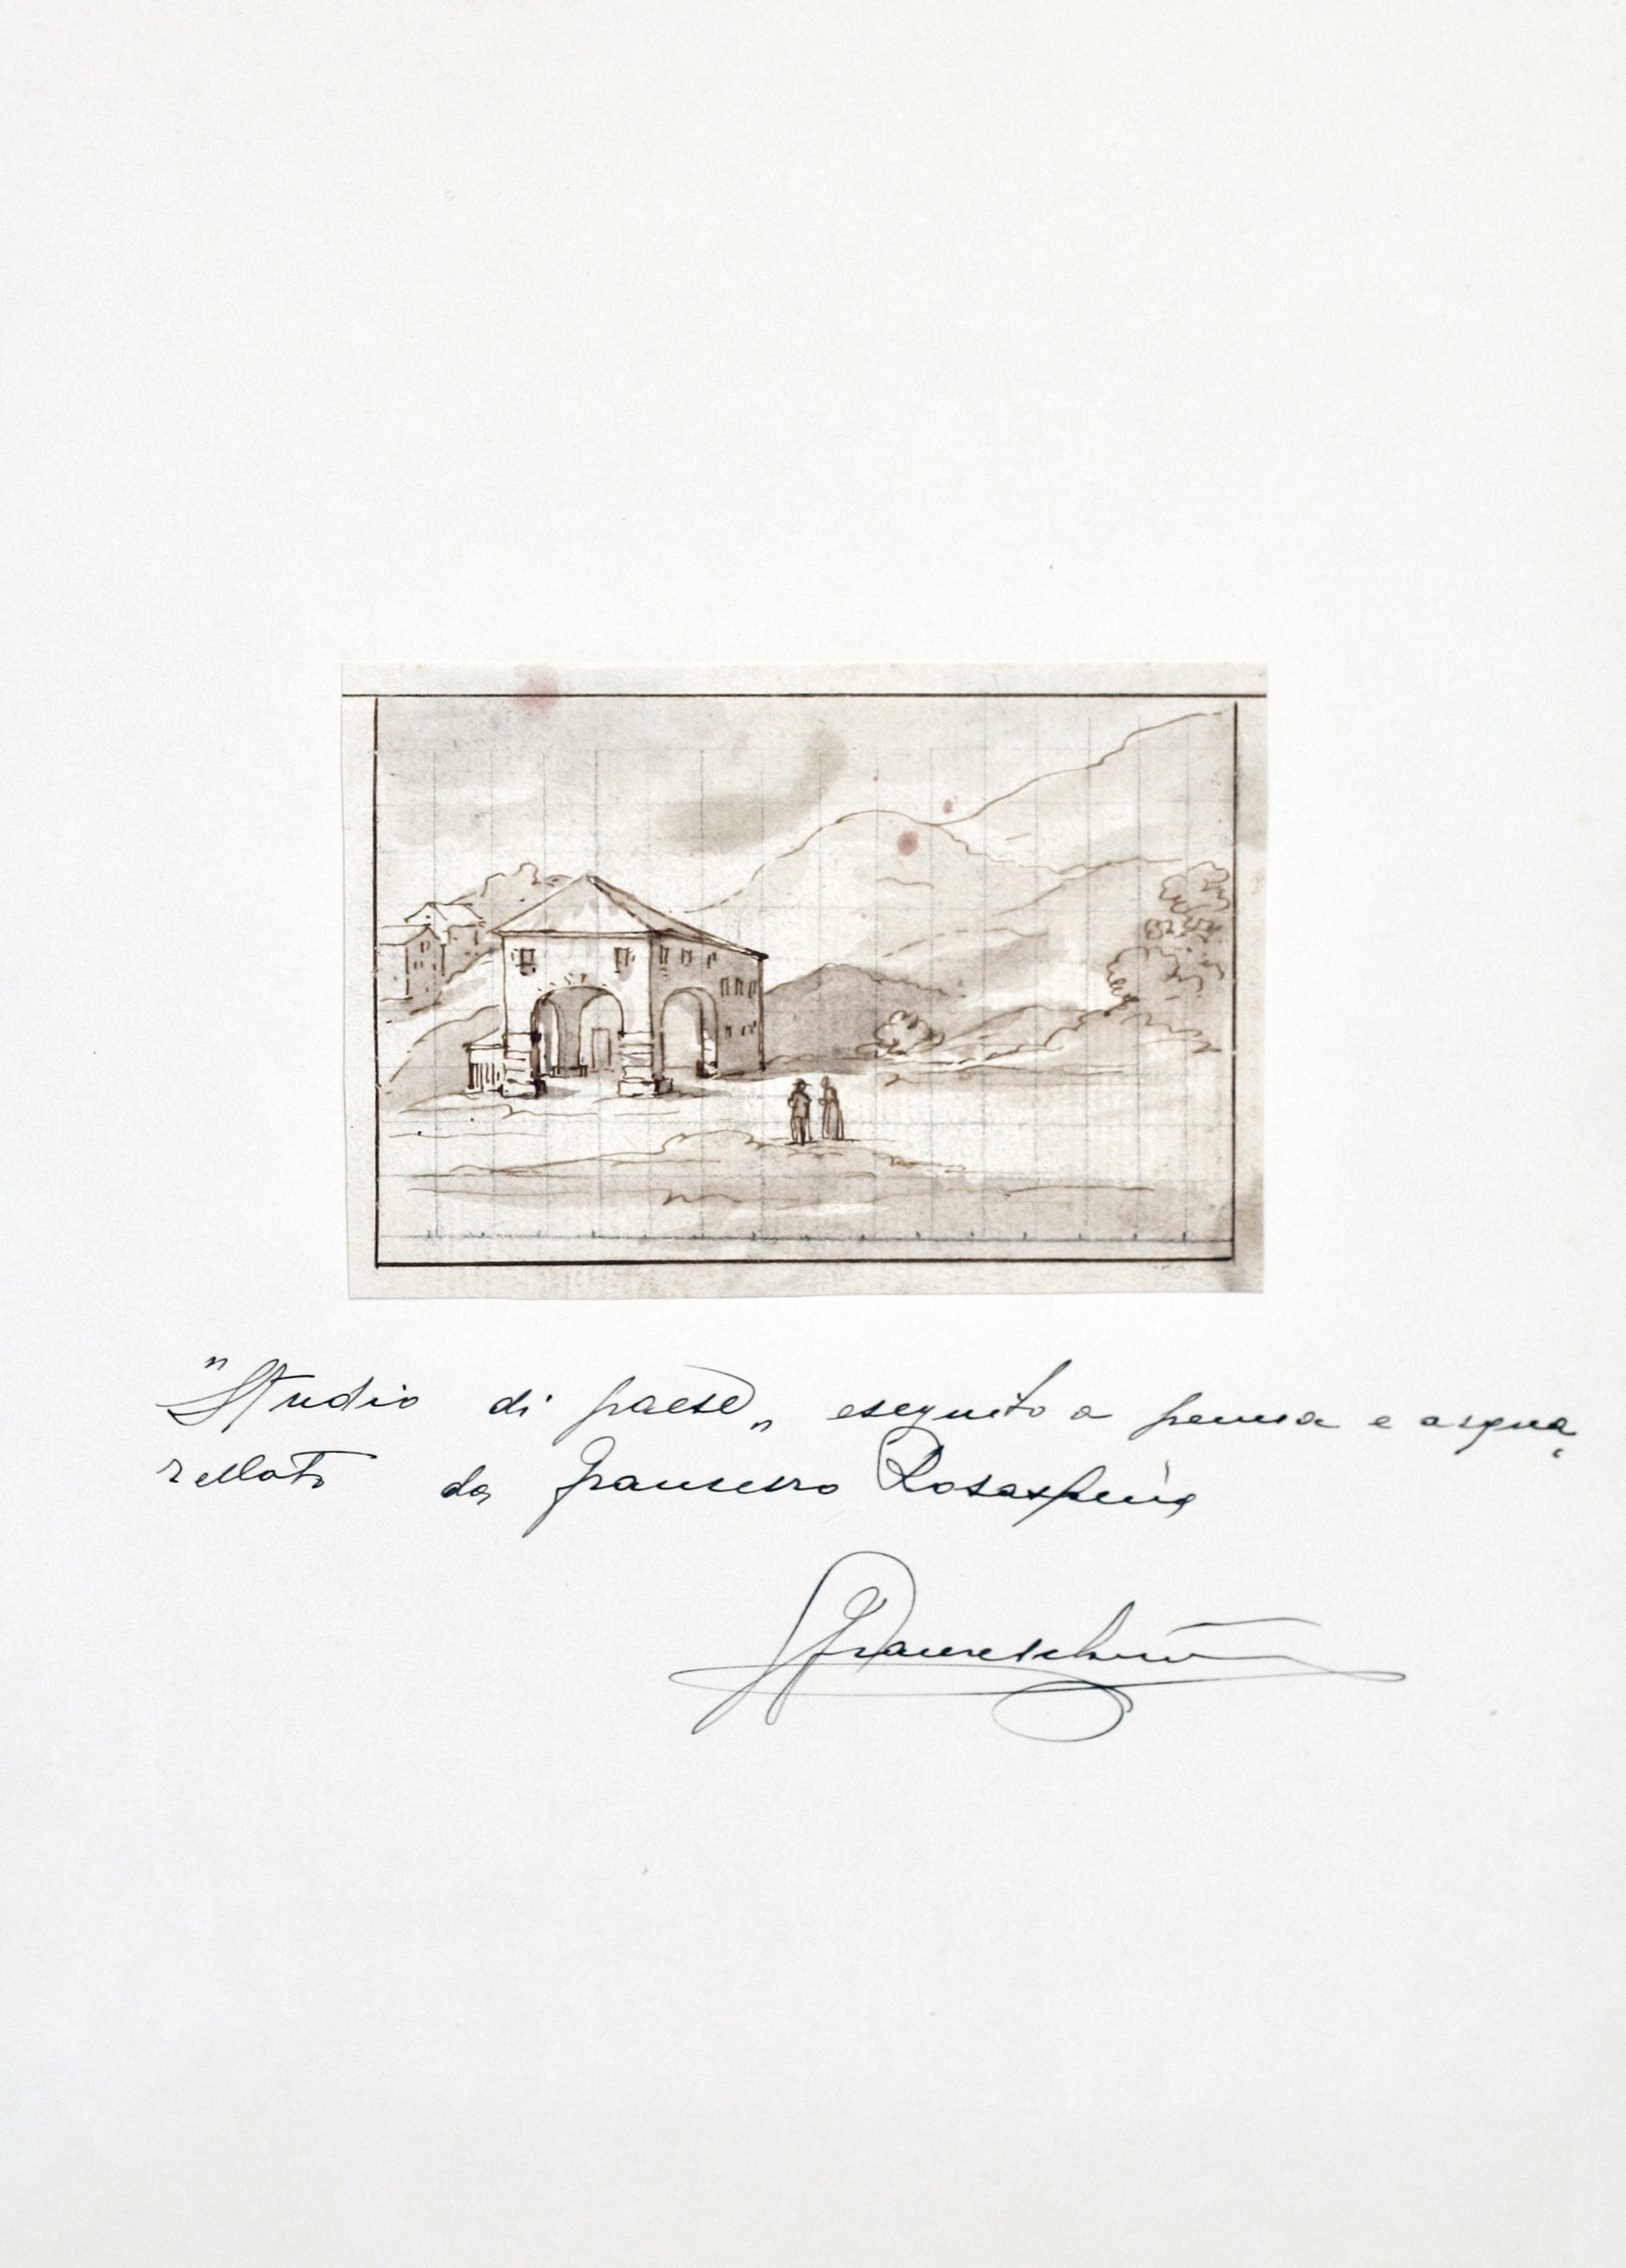 "Studio di paese„ eseguito a penna e acqua
rellato da Francesco Rosaspina
Franceschini